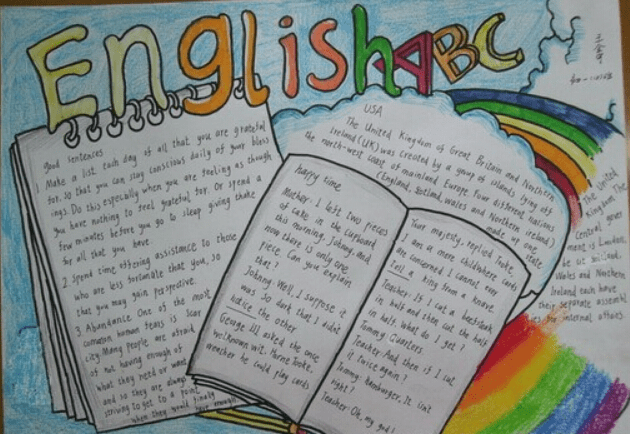 English ABC
good sentences
1 Make a list each day of all that you are grateful
for. So that you can stay conscious daily of your bless
ings. Do this especially when you are feeling as though
you have nothing to feel grateful for. Or spend a
few minutes before you go to sleep giving thake
for all that you have
2. Spend time offering assistance to those
who are less fortunate that you, so
that you may gain perspective.
3. Abundance One of the most
common human fears is scar
city. Many people are afraid
of not having enough of
what they need or want
and so they are always
striving to get to a point
when they would finally
have enough
happy time
Mother: I left two pieces
of cake in the cupboard
this morning. Johnny, and
now there is only one
piece. Can you explain
that?
Johnny: Well, I suppose it
was so dark that I didn't
notice the other
George III, asked the once
well known wit. Horne Tooke,
weather he could play cards
Your majesty, replied Tooke,
I am a mere child where cards
are concerned I cannot even
tell a king from a knave
Teacher: If I cut a beefsteak
in half and then cut the half
in half. What do I get?
Tommy: quarters.
Teacher: And then if I cut
it twice again?
Tommy: Hamburger. It isn't
right?
Teacher: Oh, my god!
USA
The United Kingdom of Great Britain and Northern
Ireland (UK) was created by a group of islands lying off
the north-west coast of mainland Europe. Four different nations
(England, Scotland, wales and Northern ireland)
made up one
state
The United
Kingdom The
Central gover
ment is London.
Wales and Northern
Ireland each have
their separate assembl
ies for internal affairs.